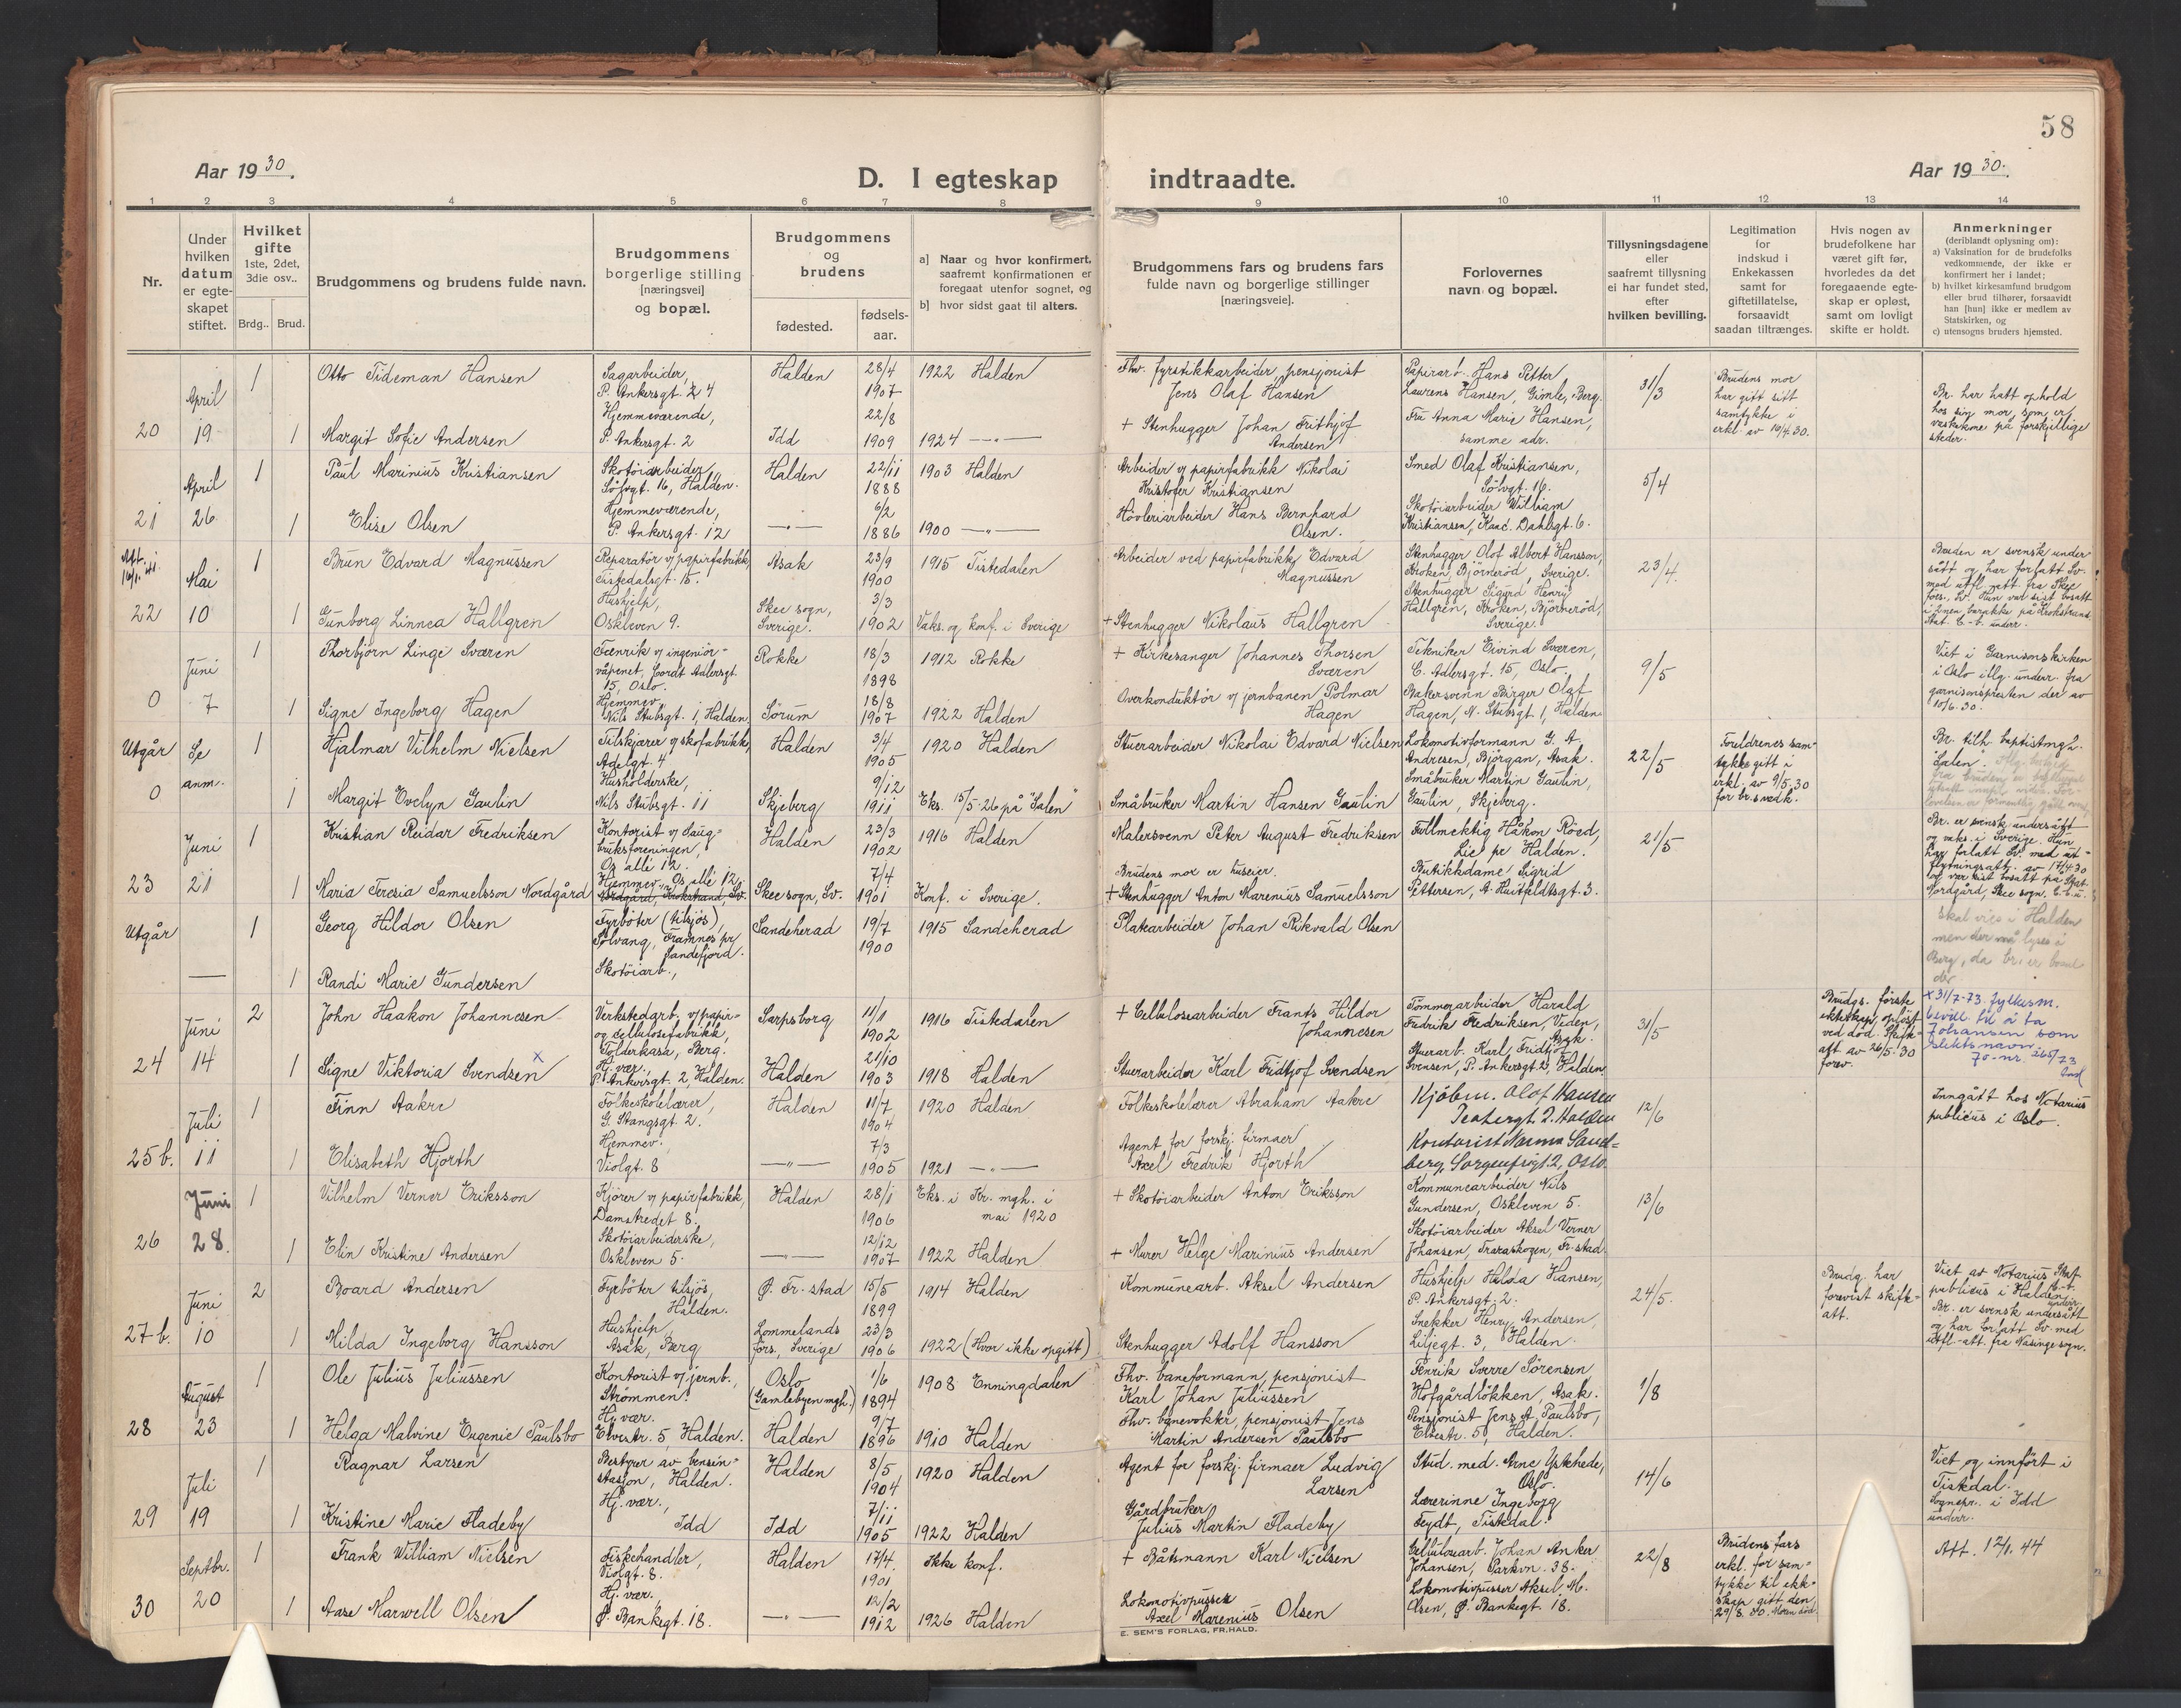 58
Aar 1930.
D. I egteskap indtraadte.
Aar 1930.
1 2 3 4 5 6 7 8 9 10 11 12 13 14
Nr.
Under hvilken datum er egteskapet stiftet.
Hvilket gifte 1ste, 2det, 3die osv..
Brdg.. Brud.
Brudgommens og brudens fulde navn.
Brudgommens borgerlige stilling [næringsvei] og bopæl.
Brudgommens og brudens
fødested.
fødsels-aar.
a] Naar og hvor konfirmert, saafremt konfirmationen er foregaat utenfor sognet, og
b] hvor sidst gaat til alters.
Brudgommens fars og brudens fars fulde navn og borgerlige stillinger [næringsveie].
Forlovernes navn og bopæl.
Tillysningsdagene eller saafremt tillysning ei har fundet sted, efter hvilken bevilling.
Legitimation for indskud i Enkekassen samt for giftetillatelse, forsaavidt saadan tiltrænges.
Hvis nogen av brudefolkene har været gift før, hvorledes da det foregaaende egteskap er opløst, samt om lovligt skifte er holdt.
Anmerkninger
(deriblandt oplysning om):
a) Vaksination for de brudefolks vedkommende, der ikke er konfirmert her i landet;
b) hvilket kirkesamfund brudgom eller brud tilhører, forsaavidt han [hun] ikke er medlem av Statskirken, og
c) utensogns bruders hjemsted.
20 April 19
1 Otto Tideman Hansen
Sagarbeider, P. Ankersgt. 24
Halden 28/4 1907 1922 Halden
Fhv. fyrstikkarbeider, pensjonist Jens Olaf Hansen
Papirarb. Hans Petter Laurens Hansen, Gimle, Berg.
31/3
Brudens mor har gitt sitt samtykke i erkl. av 10/4.30.
Br. har hatt ophold hos sin mor, som er vaskekone på forskjellige steder.
1 Margit Sofie Andersen
Hjemmeværende, P. Ankersgt. 2
Idd 22/8 1909 1924 —"—
+ Stenhugger Johan Frithjof Andersen
Fru Anna Marie Hansen, samme adr.
21 April 26
1 Paul Marinius Kristiansen
Skotöiarbeider, Sölvgt. 16, Halden.
Halden 22/11 1888 1903 Halden
Arbeider v/ papirfabrikk Nikolai Kristofer Kristiansen
Smed Olaf Kristiansen, Sölvgt. 16.
5/4
1 Elise Olsen
Hjemmeværende, P. Ankersgt. 12
—"— 6/2 1886 1900 —"—
Hövleriarbeider Hans Bernhard Olsen.
Skotöiarbeider William Kristiansen, Kanc. Dahlsgt. 6.
Att. 16/1.41.
22 Mai 10
1 Brun Edvard Magnussen
Reparatör v/ papirfabrikk, Tistedalsgt. 15.
Asak 23/9 1900 1915 Tistedalen
Arbeider ved papirfabrikk, Edvard Magnussen
Stenhugger Olof Albert Hansson, Kroken, Björneröd, Sverige.
23/4.
Bruden er svensk undersått og har forlatt Sv. med utfl. att. fra Skee fors., Sv. Hun var sist bosatt
1 Gunborg Linnea Hallgren
Hushjelp, Oskleven 9.
Skee sogn, Sverige. 3/3 1902 Vaks. og konf. i Sverige
+ Stenhugger Nikolaus Hallgren
Stenhugger Sigurd Henry Hallgren, Kroken, Björneröd, Sverige.
0 Juni 7
1 Thorbjörn Linge Sværen
Fenrik v/ ingeniörvåpenet, Cordt Adelersgt. 15, Oslo.
Rokke 18/3 1898 1912 Rokke
+ Kirkesanger Johannes Thorsen Sværen
Tekniker Eivind Sværen, C. Adlersgt. 15, Oslo.
9/5
Viet i Garnisonskirken i Oslo iflg. underr. fra garnisonspresten der av 10/6.30.
1 Signe Ingeborg Hagen
Hjemmev. Nils Stubsgt. 1, Halden.
Sörum 18/8 1907 1922 Halden
Overkonduktör v/ jernbanen Polmar Hagen
Bakersvenn Birger Olaf Hagen, N. Stubsgt 1, Halden
Utgår 0 Se anm.
1 Hjalmar Vilhelm Nielsen
Tilskjærer v/ skofabrikk, Adelgt. 4
Halden 3/4 1905 1920 Halden
Stuerarbeider Nikolai Edvard Nielsen
Lokomotivformann G. A. Andresen, Björgan, Asak.
22/5
Foreldrenes samtykke gitt i erkl. av 9/5.30 for br. s vedk.
Br. tilh. baptistmgh. "Salen".
1 Margit Evelyn Gaulin
Husholderske, Nils Stubsgt. 11
Skjeberg 9/12 1911 Eks. 15/5-26 på "Salen"
Småbruker Martin Hansen Gaulin
Småbruker Martin Gaulin, Gaulin, Skjeberg.
23 Juni 21
1 Kristian Reidar Fredriksen
Kontorist v/ Saugbruksforeningen, Os allé 12.
Halden 23/3 1902 1916 Halden
Malersvenn Peter August Fredriksen
Fullmektig Håkon Röed, Lie pr Halden.
21/5
Br. er svensk undersått og vaks. i Sverige. Hun har forlatt Sv. med utflytningsatt. av 17/4 30 og var sist bosatt på Stat. Nordgård, Skee sogn.
1 Maria Teresia Samuelsson Nordgård
Hjemmev. Os allé 12.
Skee sogn, Sv. 7/4 1901 Konf. i Sverige.
Brudens mor er huseier.
+ Stenhugger Anton Marenius Samuelsson
Butikkdame Sigrid Pettersen, A. Huitfeldtsgt. 3.
Utgår —
1 Georg Hildor Olsen
Fyrböter (tilsjös), Solvang, Framnes pr. Sandefjord.
Sandeherad 19/7 1900 1915 Sandeherad
Platearbeider Johan Rikvald Olsen
Skal vies i Halden men der må lyses i Berg, da br. er bosatt der
1 Randi Marie Gundersen
Skotöiarb.,
24 Juni 14
2 John Haakon Johannesen
Verkstedarb. v/ papir- og cellulosefabrikk, Folderkasa, Berg.
Sarpsborg 11/1 1902 1916 Tistedalen
+ Cellulosearbeider Frants Hildor Johannesen
Tömmerarbeider Harald Fredrik Fredriksen, Veden, Asak.
31/5
Brudgs. förste ekteskap oplöst ved död. Skifteatt. av 26/5.30 forev.
x 31/7-73. fylkesm. bevill. til å ta Johansen som slektsnavn
1 Signe Viktoria Svendsen x
Hj. vær., P. Ankersgt. 2, Halden.
Halden 21/10 1903 1918 Halden
Stuerarbeider Karl Fridtjof Svendsen
Stuerarb. Karl Fridtjof Svensen, P. Ankersgt 2, Halden
25 b. Juli 11
1 Finn Aakre
Folkeskolelærer, G. Stangsgt. 2.
Halden 11/7 1904 1920 Halden
Folkeskolelærer Abraham Aakre
Kjöbm. Olof Hansen Teatergt. 2. Halden
12/6
Inngått hos Notarius publicus i Oslo.
1 Elisabeth Hjorth
Hjemmev. Violgt. 8
—"— 7/3 1905 1921 —"—
Agent for forskj. firmaer Axel Fredrik Hjorth
Kontorist Nanna Sandberg, Sorgenfrigt. 2, Oslo.
26 Juni 28.
1 Vilhelm Verner Eriksson
Kjörer v/ papirfabrikk, Damstredet 8.
Halden 28/1 1906 Eks. i Kr. mgh. i mai 1920
+ Skotöiarbeider Anton Eriksson
Kommunearbeider Nils Gundersen, Oskleven 5.
13/6
1 Elin Kristine Andersen
Skotöiarbeiderske, Oskleven 5.
—"— 12/12 1907 1922 Halden
+ Murer Helge Marinius Andersen
Skotöiarbeider Aksel Verner Johansen, Traraskogen, Fr.stad.
27-b. Juni 10
2 Board Andersen
Fyrböter tilsjös, Halden.
Ø. Fr.stad 15/5 1899 1914 Halden
Kommunearb. Aksel Andersen
Hushjelp Hulda Hansen, P. Ankersgt. 2.
24/5.
Brudg. har forevist skifteatt.
Viet av Notarius publicus i Halden. Br. er svensk undersått og har forlatt Sv. med utfl.-att. fra Näsinge sogn.
1 Milda Ingeborg Hansson
Hushjelp, Asak, Berg
Lommelands fors., Sverige 23/3 1906 1922 (Hvor ikke opgitt)
Stenhugger Adolf Hansson
Snekker Henry Andersen, Liljegt. 3, Halden.
28 August 23
1 Ole Julius Juliussen
Kontorist v/ jernb., Strömmen.
Oslo (Gamlebyen mgh.) 1/6 1894 1908 Enningdalen
Fhv. baneformann, pensjonist Karl Johan Juliussen
Fenrik Sverre Sörensen, Hofgårdlökken, Asak.
1/8
1 Helga Malvine Eugenie Paulsbo
Hj. vær. Elvestr. 5, Halden.
Halden 9/7 1896 1910 Halden
Fhv. banevokter, pensjonist Jens Martin Andersen Paulsbo
Pensjonist Jens A. Paulsbo, Elvestr. 5, Halden.
29 Juli 19
1 Ragnar Larsen
Bestyrer av bensinstasjon, Halden.
Halden 8/5 1904 1920 Halden
Agent for forskj. firmaer Ludvig Larsen
Stud. med. Arne Ystehede, Oslo.
14/6
Viet og innfört i Tistedal. Sognepr. i Idd underr.
1 Kristine Marie Fladeby
Hj. vær., Idd
Idd 7/11 1905 1922 Halden
Gårdbruker Julius Martin Fladeby
Lærerinne Ingeborg Feydt, Tistedal.
30 Septbr. 20
1 Frank William Nielsen
Fiskehandler, Violgt. 8.
Halden 17/4. 1901 Ikke konf.
+ Båtsmann Karl Nielsen
Cellulosearb. Johan Anker Johansen, Parkvn. 38.
22/8
Brudens fars erkl. for samtykke til ekteskap gitt den 29/8.30. Moren död.
Att. 12/1. 44
1 Aase Marwell Olsen
Hj. vær., Ø. Bankegt. 18.
—"— 12/2 1912 1926 Halden
Lokomotivpusser Axel Marenius Olsen
Lokomotivpusser Aksel M. Olsen, Ø. Bankegt. 18.
E. SEM'S FORLAG, FR.HALD.